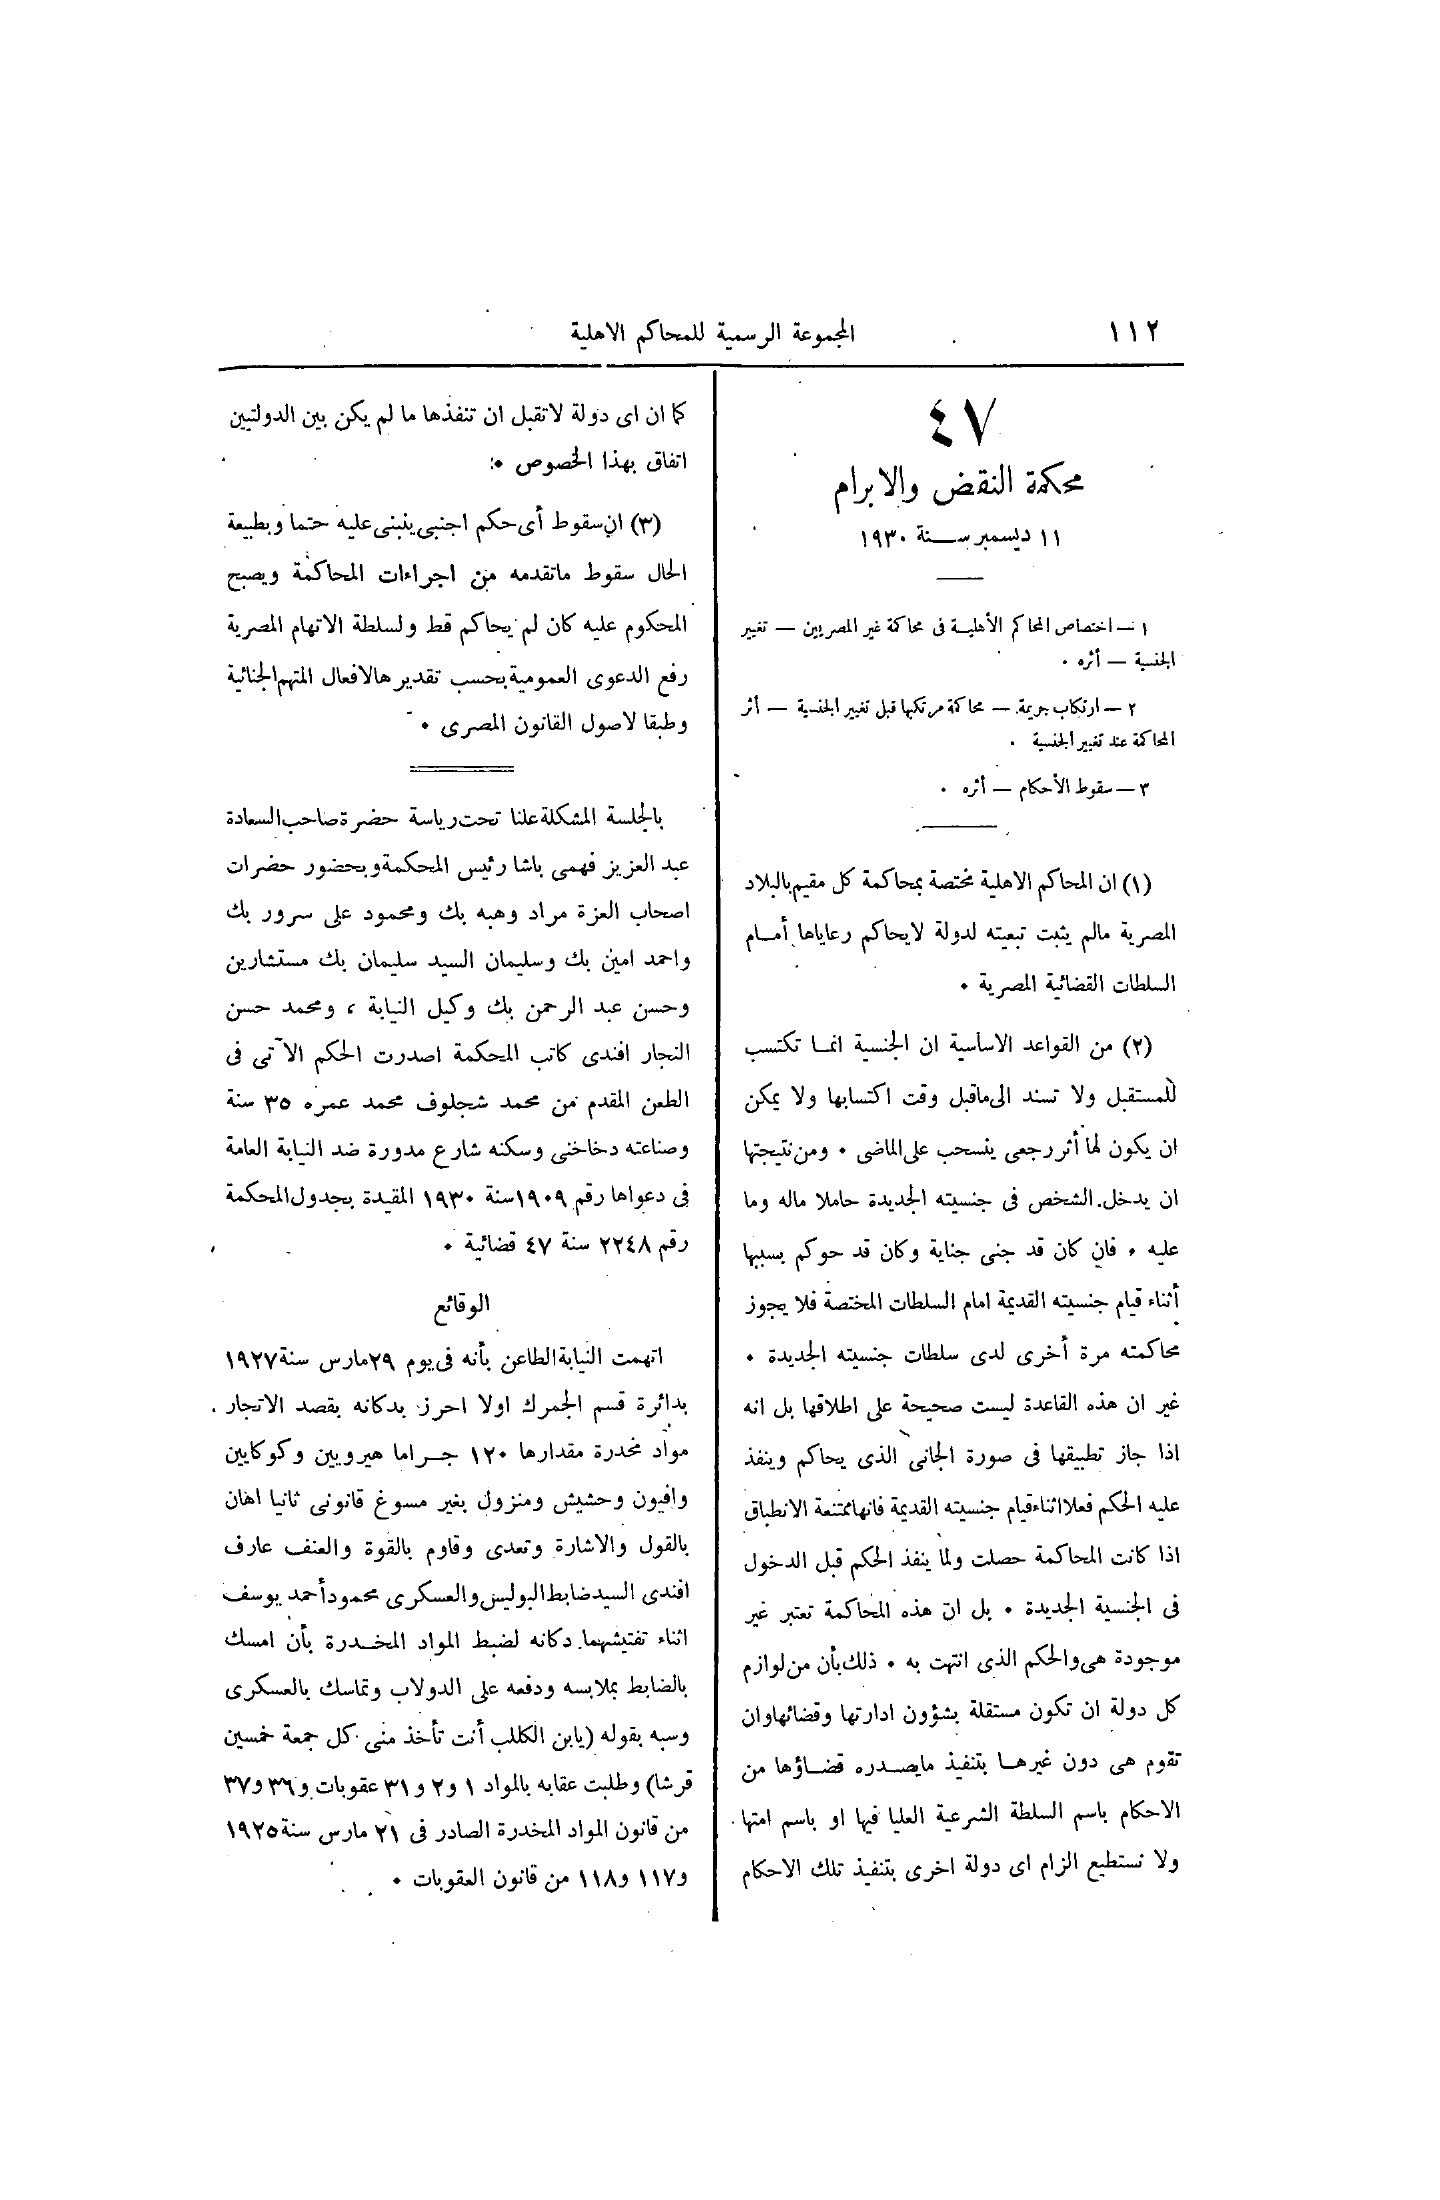 ١١٢
المجموعة الرسمية للمحاكم الاهلية
٤٧
محكمة النقض والابرام
١١ ديسمبر سنة ١٩٣٠
١ — اختصاص المحاكم الأهلية فى محاكمة غير المصريين — تغيير
الجنسية — أثره .
٢ — ارتكاب جريمة . — محاكمة مرتكبها قبل تغيير الجنسية — أثر
المحاكمة عند تغيير الجنسية .
٣ — سقوط الأحكام — أثره .
(١) ان المحاكم الاهلية مختصة بمحاكمة كل مقيم بالبلاد
المصرية مالم يثبت تبعيته لدولة لايحاكم رعاياها أمام
السلطات القضائية المصرية .
(٢) من القواعد الاساسية ان الجنسية انما تكتسب
للمستقبل ولا تسند الى ماقبل وقت اكتسابها ولا يمكن
ان يكون لها أثر رجعى ينسحب على الماضى . ومن نتيجتها
ان يدخل الشخص فى جنسيته الجديدة حاملا ماله وما
عليه . فان كان قد جنى جناية وكان قد حوكم بسببها
أثناء قيام جنسيته القديمة امام السلطات المختصة فلا يجوز
محاكمته مرة أخرى لدى سلطات جنسيته الجديدة .
غير ان هذه القاعدة ليست صحيحة على اطلاقها بل انه
اذا جاز تطبيقها فى صورة الجانى الذى يحاكم وينفذ
عليه الحكم فعلا اثناء قيام جنسيته القديمة فانها ممتنعة الانطباق
اذا كانت المحاكمة حصلت ولما ينفذ الحكم قبل الدخول
فى الجنسية الجديدة . بل ان هذه المحاكمة تعتبر غير
موجودة هى والحكم الذى انتهت به . ذلك بأن من لوازم
كل دولة ان تكون مستقلة بشؤون ادارتها وقضائها وان
تقوم هى دون غيرها بتنفيذ مايصدره قضاؤها من
الاحكام باسم السلطة الشرعية العليا فيها او باسم امتها
ولا نستطيع الزام اى دولة اخرى بتنفيذ تلك الاحكام
كما ان اى دولة لاتقبل ان تنفذها ما لم يكن بين الدولتين
اتفاق بهذا الخصوص .
(٣) ان سقوط أى حكم اجنبى ينبنى عليه حتما وبطبيعة
الحال سقوط ماتقدمه من اجراءات المحاكمة ويصبح
المحكوم عليه كان لم يحاكم قط ولسلطة الاتهام المصرية
رفع الدعوى العمومية بحسب تقديرها لافعال المتهم الجنائية
وطبقا لاصول القانون المصرى .
بالجلسة المشكلة علنا تحت رياسة حضرة صاحب السعادة
عبد العزيز فهمى باشا رئيس المحكمة وبحضور حضرات
اصحاب العزة مراد وهبه بك ومحمود على سرور بك
واحمد امين بك وسليمان السيد سليمان بك مستشارين
وحسن عبد الرحمن بك وكيل النيابة ، ومحمد حسن
النجار افندى كاتب المحكمة اصدرت الحكم الآتى فى
الطعن المقدم من محمد شجلوف محمد عمره ٣٥ سنة
وصناعته دخاخنى وسكنه شارع مدورة ضد النيابة العامة
فى دعواها رقم ١٩٠٩ سنة ١٩٣٠ المقيدة بجدول المحكمة
رقم ٢٢٤٨ سنة ٤٧ قضائية .
الوقائع
اتهمت النيابة الطاعن بأنه فى يوم ٢٩ مارس سنة ١٩٢٧
بدائرة قسم الجمرك اولا احرز بدكانه بقصد الاتجار
مواد مخدرة مقدارها ١٢٠ جراما هيرويين وكوكايين
وافيون وحشيش ومنزول بغير مسوغ قانونى ثانيا اهان
بالقول والاشارة وتعدى وقاوم بالقوة والعنف عارف
افندى السيد ضابط البوليس والعسكرى محمود أحمد يوسف
اثناء تفتيشهما دكانه لضبط المواد المخدرة بأن امسك
بالضابط بملابسه ودفعه على الدولاب وتماسك بالعسكرى
وسبه بقوله (يابن الكلب أنت تأخذ منى كل جمعة خمسين
قرشا) وطلبت عقابه بالمواد ١ و٢ و٣١ عقوبات و٣٦ و٣٧
من قانون المواد المخدرة الصادر فى ٢١ مارس سنة ١٩٢٥
و١١٧ و١١٨ من قانون العقوبات .